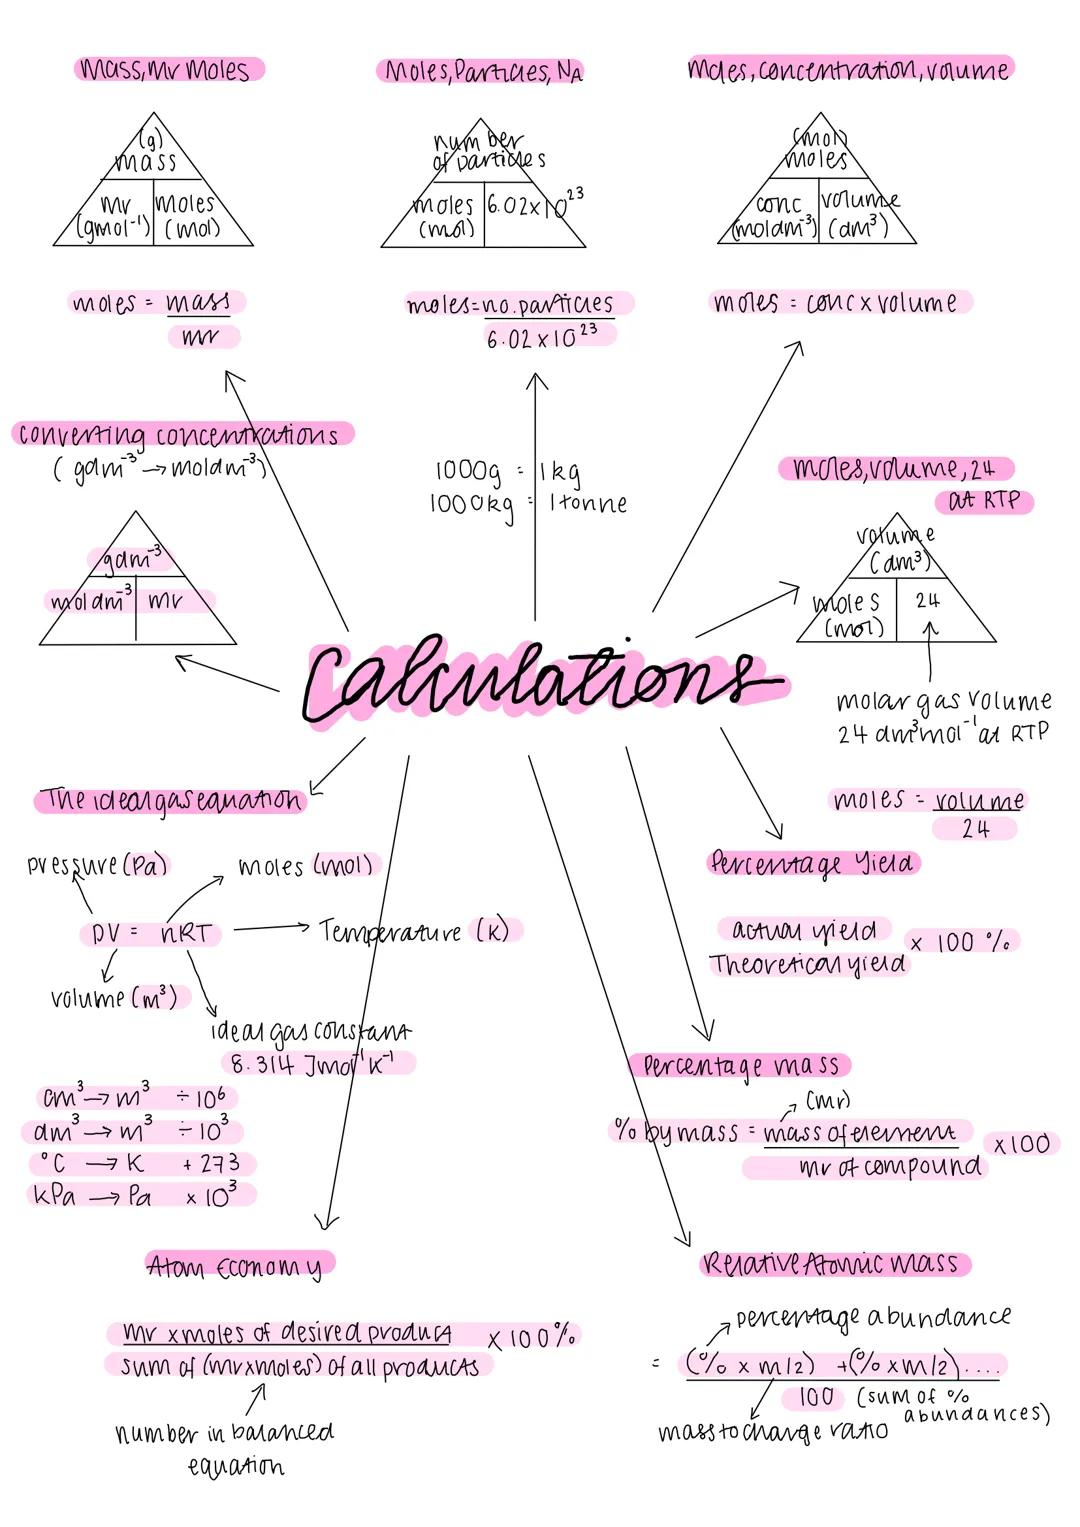 Mass, Mr Moles
(g)
mass
Mr
(gmol⁻¹)
moles
(mol)
moles = mass
mr
Moles, Particles, NA
number
of particles
moles
(mol)
6.02x10²³
moles = no. particles
6.02 x 10²³
moles, concentration, volume
(mol)
moles
conc
(moldm⁻³)
volume
(dm³)
moles = conc x volume
converting concentrations
(gdm⁻³ → moldm⁻³)
gdm⁻³
moldm⁻³
mr
1000g = 1kg
1000kg = 1tonne
moles, volume, 24
at RTP
volume
(dm³)
moles
(mol)
24
molar gas volume
24 dm³mol⁻¹ at RTP
moles = volume
24
Calculations
The ideal gas equation
pressure (Pa)
moles (mol)
pV = nRT
Temperature (K)
volume (m³)
ideal gas constant
8.314 Jmol⁻¹K⁻¹
cm³ → m³ ÷ 10⁶
dm³ → m³ ÷ 10³
°C → K + 273
kPa → Pa x 10³
Percentage Yield
actual yield
Theoretical yield
x 100 %
Percentage mass
(mr)
% by mass = mass of element
mr of compound
x100
Atom Economy
Mr x moles of desired product
sum of (mrxmoles) of all products
x 100%
number in balanced
equation
Relative Atomic Mass
percentage abundance
= (% x m/z) + (% x m/z)....
100 (sum of %
abundances)
mass to charge ratio